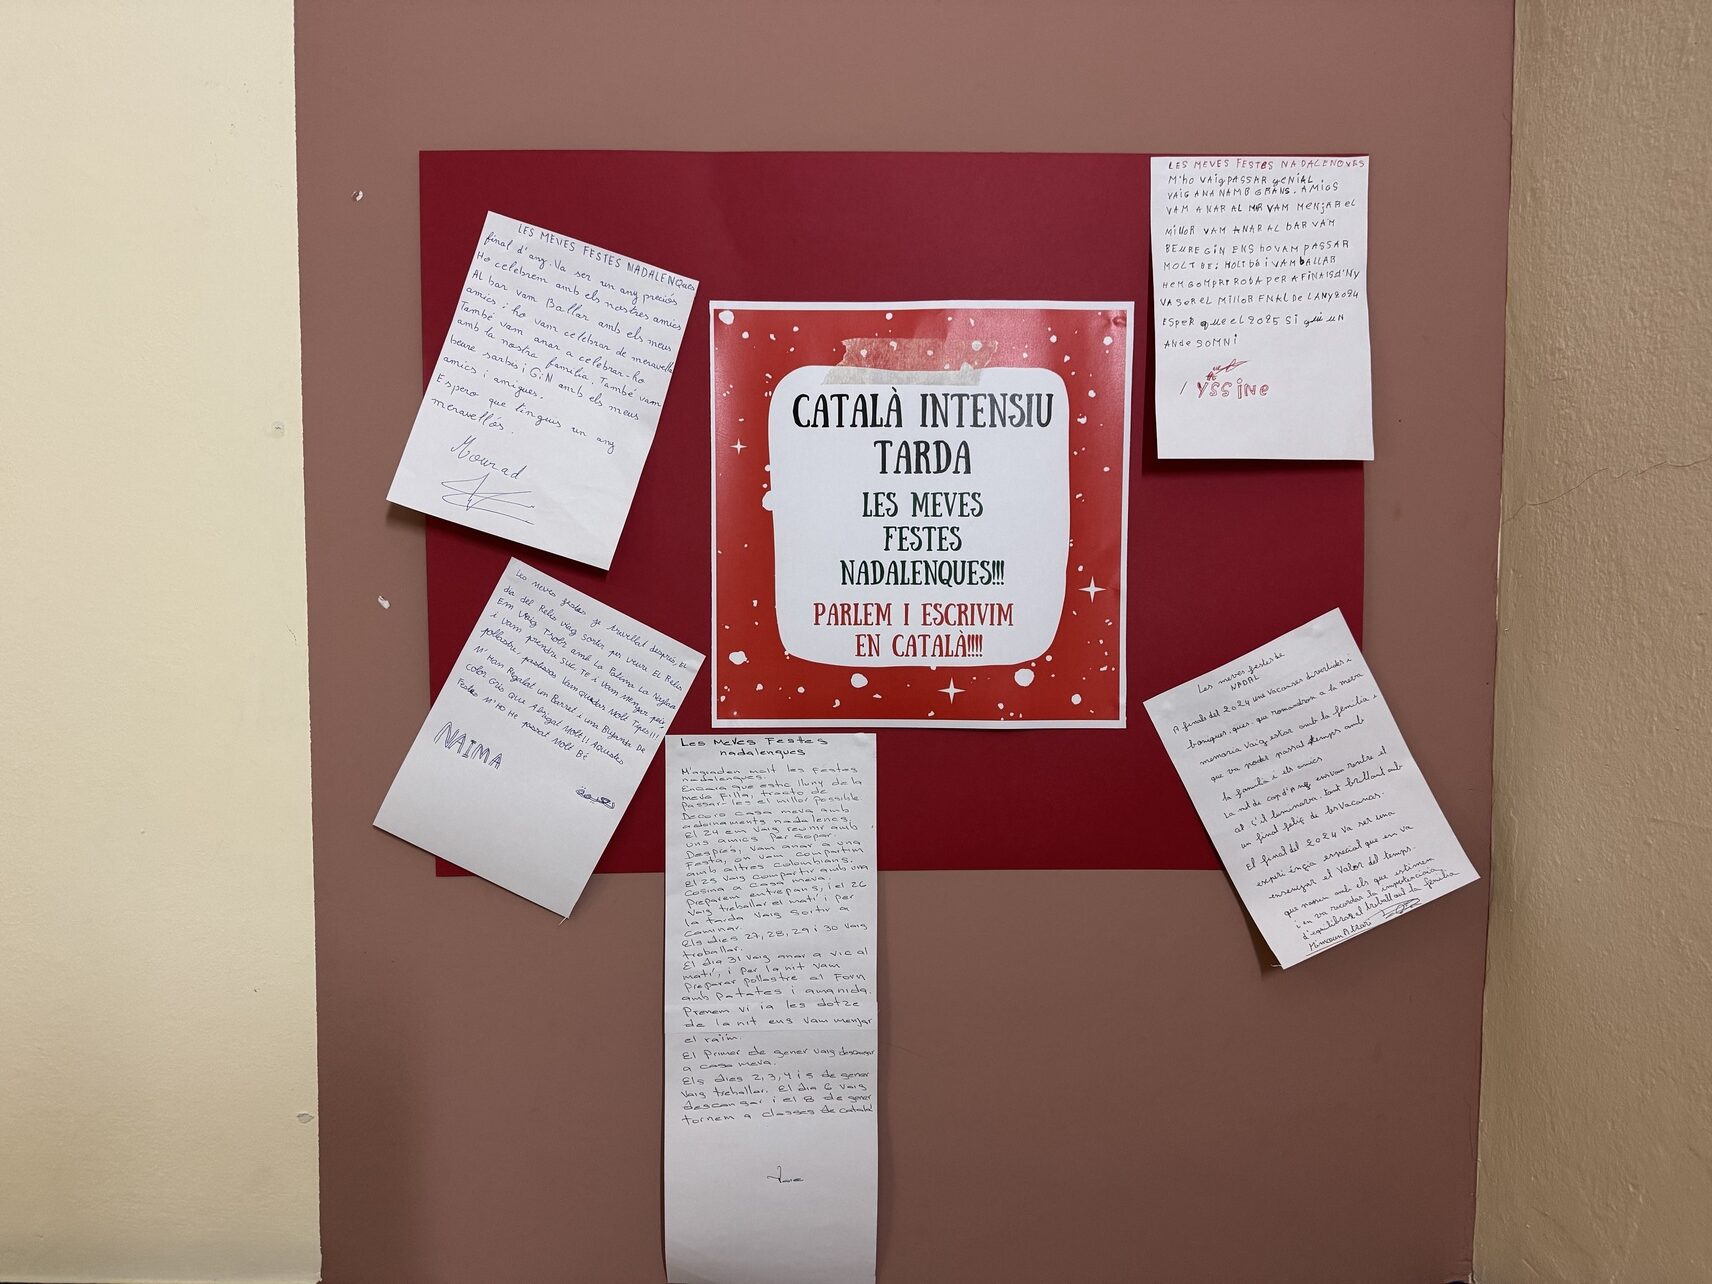 CATALÀ INTENSIU
TARDA
LES MEVES
FESTES
NADALENQUES!!!
PARLEM I ESCRIVIM
EN CATALÀ!!!!
LES MEVES FESTES NADALENQues
final d'any. Va ser un any preciós
Ho celebrem amb els nostres amics
Al bar vam Ballar amb els meus
amics i ho vam celebrar de meravella
També vam anar a celebrar-ho
amb la nostra familia. També vam
beure sarbes i GiN amb els meus
amics i amigues.
Espero que tinguis un any
meravellós.
Mourad
Les meves festes je trevellat després, El
dia del Reis vaig sortir per veure El Reis
Em Vaig Trobr amb La Fatima La Najlaa
i vam prendre Suc, TE i vam menjar peix
pollastre, Vam quedar Molt Tipes!!!
M'Han Regalat un Barret i una Bufanda De
color Gris que Abrigat Molt!! Aquestes
Festes M'HO HE passat Molt Bé
NAIMA
Les Meves Festes
nadalenques
M'agraden molt les Festes
nadalenques.
Encara que estic lluny de la
meva Filla, tracto de
Passar-les el millor possible
Decoro casa meva amb
adornaments nadalencs.
El 24 em vaig reunir amb
uns amics per sopar.
Després, Vam anar a una
Festa, on vam compartim
amb altres Colombians.
El 25 vaig compartir amb una
cosina a casa meva.
Preparem entrepans, i el 26
vaig treballar el matí i per
la tarda vaig sortir a
caminar.
Els dies 27, 28, 29 i 30 vaig
treballar.
El dia 31 vaig anar a vic al
matí, i per la nit vam
preparar pollastre al Forn
amb patates i amanida.
Prenem vi ia les dotze
de la nit ens vam menjar
el raïm.
El primer de gener vaig descansar
a casa meva.
Els dies 2, 3, 4 i 5 de gener
vaig treballar. El dia 6 vaig
descansar i el 8 de gener
tornem a classes de català!
LES MEVES FESTES NADALENQVES
M'ho VAig PASSAR gENIAL.
VAIG ANAN AMB GRANS. AMIGS
VAM ANAR AL MAR VAM MENJAR el
MILLOR VAM ANAR AL BAR VAM
BEURE GIN ENS ho VAM PASSAR
MOLT BE; MOLT bè i VAM bALLAR
HEM COMPR RODA PER A FINAIS d'NY
VA SER EL MILLOR FNAL DE L ANY 2024
ESPER que el 2025 Si gui uN
ANde SOMNi
YSSiNe
Les meves festes de
NADAL
A finals del 2024 une vacances divertides i
boniques, ques, que romandran a la meva
memoria vaig estar amb la familia i
que va poder passat temps amb
la família i els amics
La nit de cap d'Any ens van rentre el
al c'il luminava, tant brillant amb
un final feliç de les Vacanas.
El final del 2024 va ser una
experiència especial que en va
ensenyar el Valor del temps.
que passem amb els que estimem
i en va recordar la importancia
d'equilibrar al treball aut la família